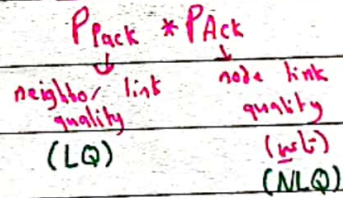 P Pack * P Ack
neighbor link quality
node link quality
(LQ)
(NLQ)